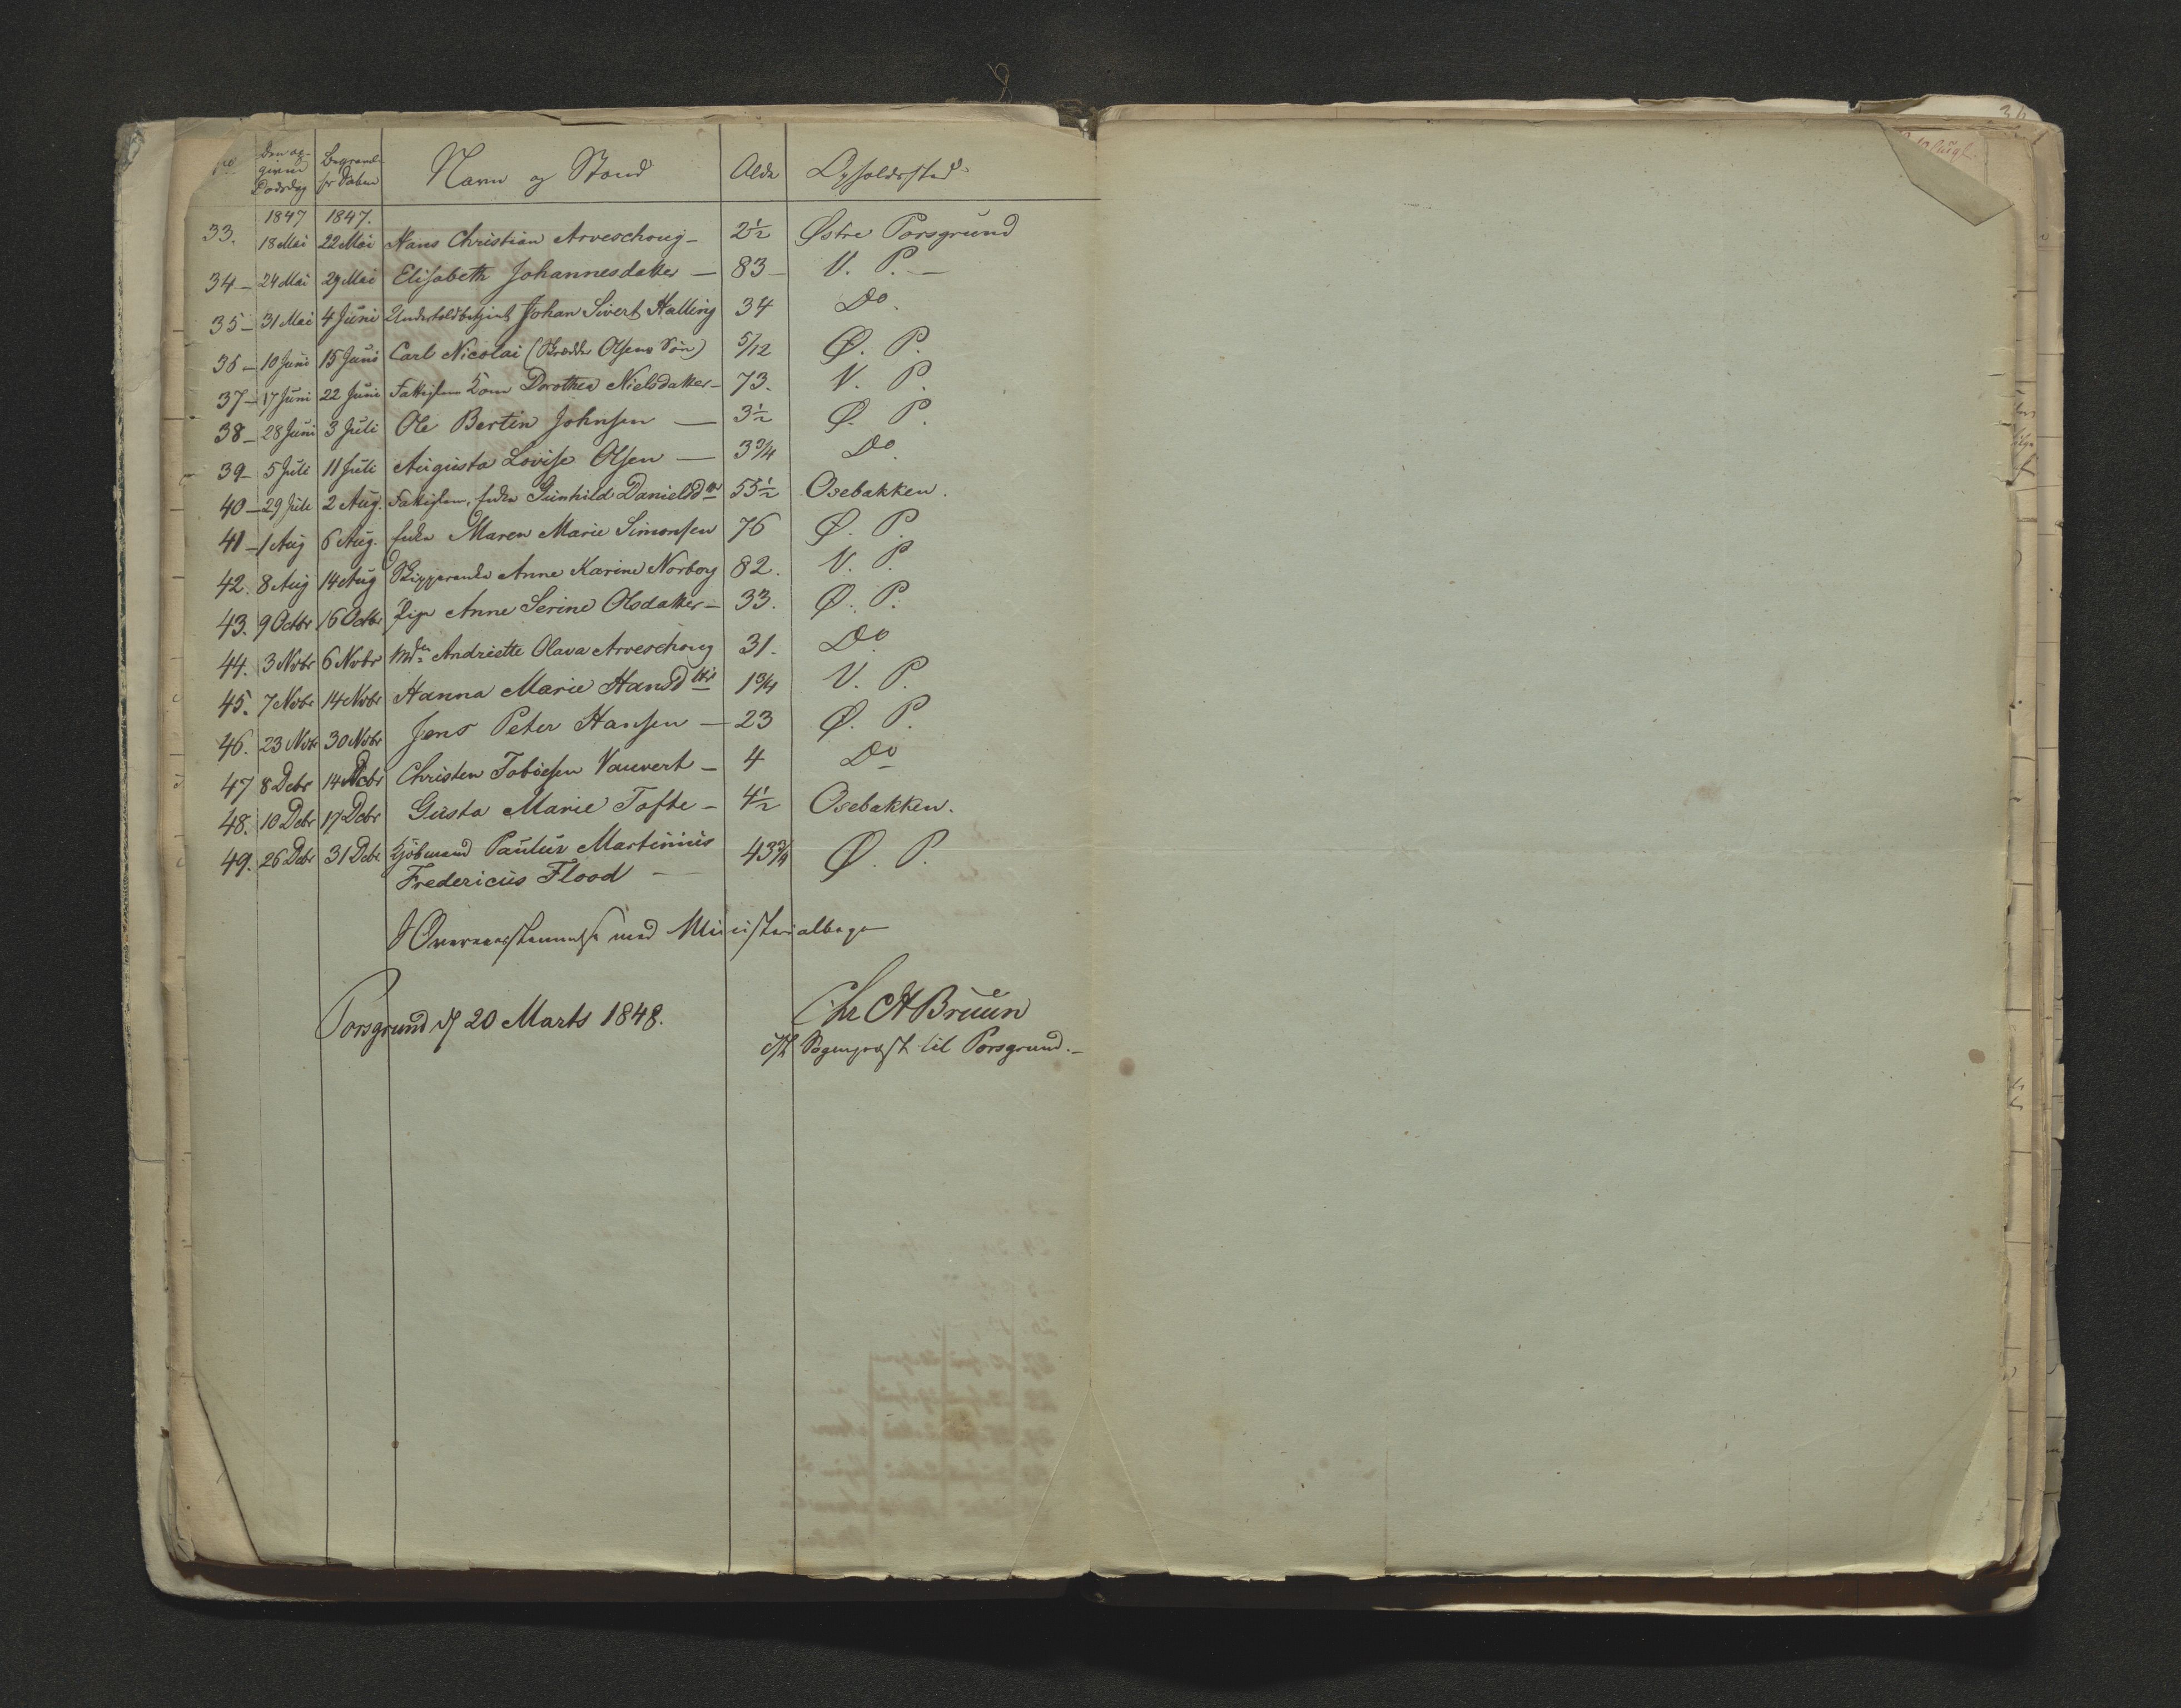 No Den op- Begravel- Navn og Stand Alder Opholdssted
givne
Dødsdag
1847 1847.
33. 18 Mai 22 Mai Hans Christian Arveschoug - 2½ Østre Porsgrund
34 - 24 Mai 29 Mai Elisabeth Johannesdatter - 83 - V. P. -
35 - 31 Mai 4 Juni Johan Sivert Halling 34 Do.
36 - 10 Juni 15 Juni Carl Nicolai (Skrædder Olsens Søn) 5/12 Ø. P.
37 - 17 Juni 22 Juni Fattiglem Kone Dorothea Nielsdatter - 73. V. P.
38 - 28 Juni 3 Juli Ole Bertin Johnsen - 3½ Ø. P.
39 - 5 Juli 11 Juli Augusta Lovise Olsen - 3¾ Do.
40 - 29 Juli 2 Aug. Fattiglem, Enke Gunhild Danielsdtr 55½ Osebakken.
41 - 1 Aug 6 Aug. Enke Maren Marie Simonsen 76 Ø. P.
42. 8 Aug 14 Aug Skipperenke Anne Karine Norborg 82. V. P.
43. 9 Octbr 16 Octbr Pige Anne Serine Olsdatter - 33. Ø. P.
44. 3 Novbr 6 Novbr Andriette Olava Arveschoug 31. Do
45. 7 Novbr 14 Novbr Hanna Marie Hansdttr 1¾ V. P.
46. 23 Novbr 30 Novbr Jens Peter Hansen - 23 Ø. P.
47 8 Decbr 14 Decbr Christen Tobiesen Vauvert - 4 Do
48. 10 Decbr 17 Decbr Gusta Marie Tofte - 4½ Osebakken.
49. 26 Decbr 31 Decbr Kjøbmand Paulus Martinius 43¾ Ø. P.
Fredericus Flood -
I Overeensstemmelse med Ministerialbogen
Porsgrund d 20 Marts 1848. Chr H Bruun
Sogneprest til Porsgrund. -